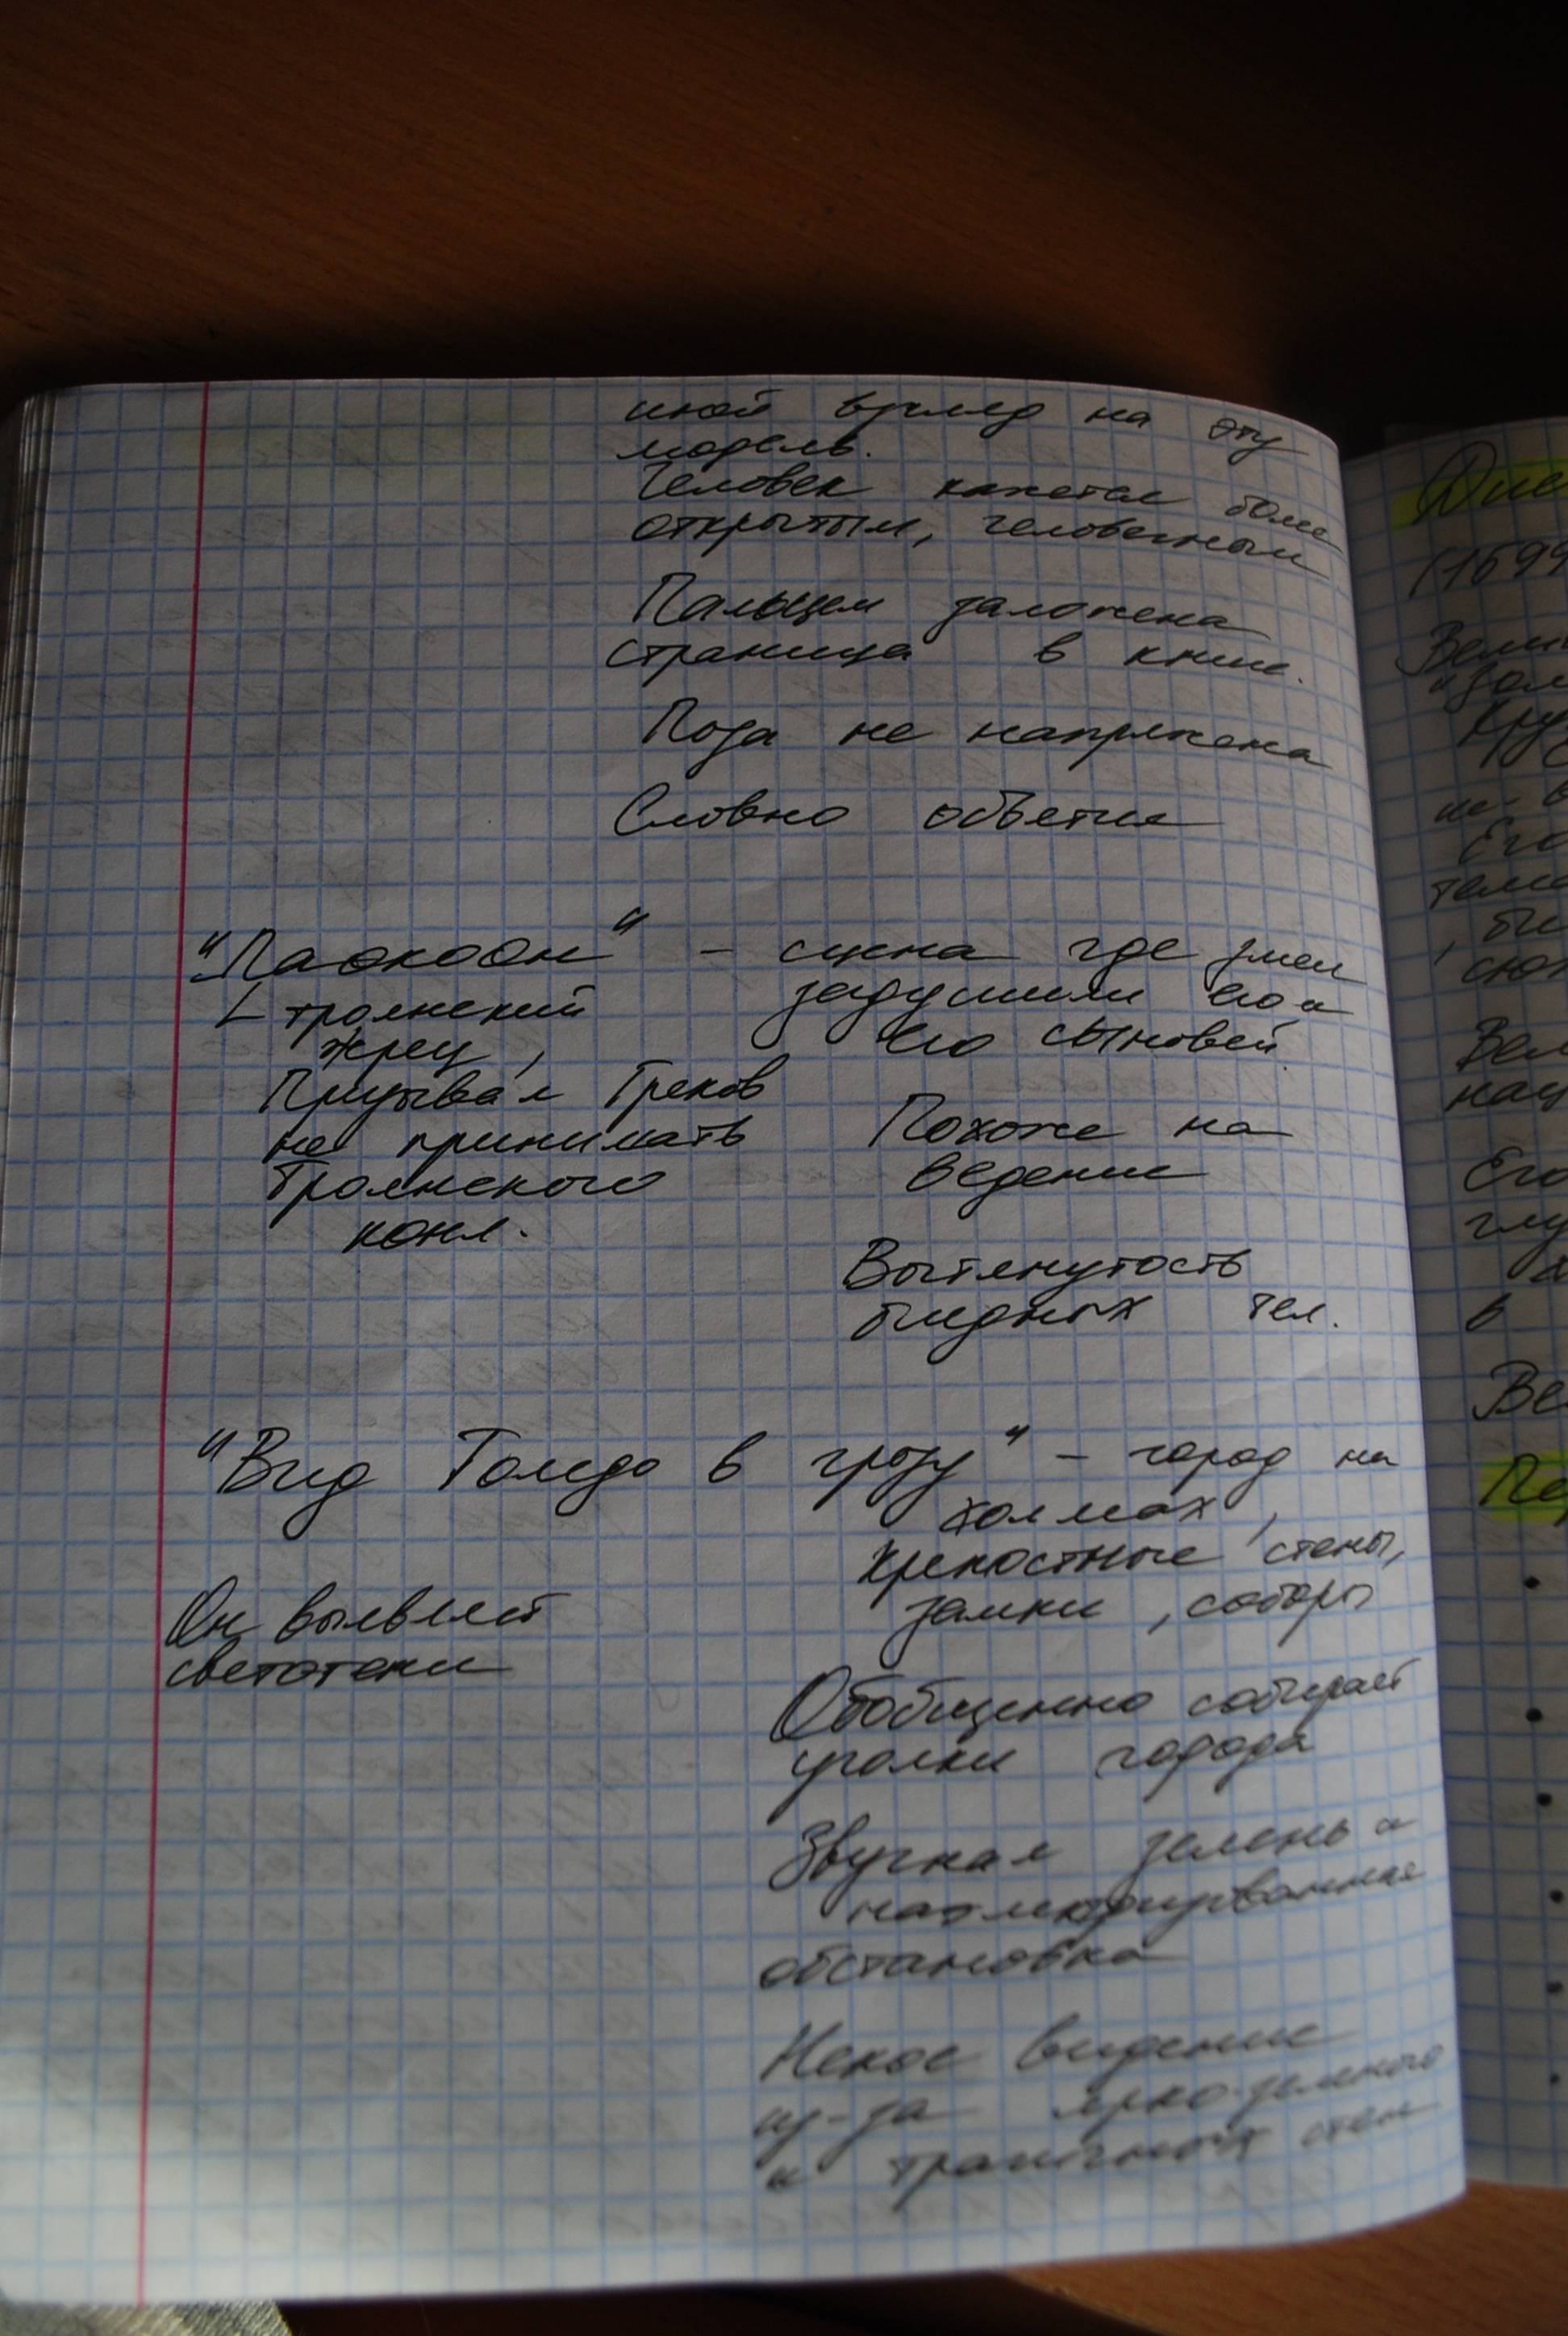 иной взгляд на эту
модель.
Человек кажется более
открытым, человечным
Пальцем заложена
страница в книге.
Поза не напряжена
Словно объятие
"Лаокоон" - сцена где змеи
задушили его и
его сыновей
троянский
жрец,
Призывал Греков
не принимать
Троянского
коня.
Похоже на
ведение
Вытянутость
бледных тел.
"Вид Толедо в грозу" - город на
холмах,
крепостные стены,
замки, соборы
Он выявляет
светотени
Обобщенно собирает
уголки города
Звучная зелень и
наэлектризованная
обстановка
Некое видение
из-за ярко-зеленого
и трагичных стен
(1599
Его
в